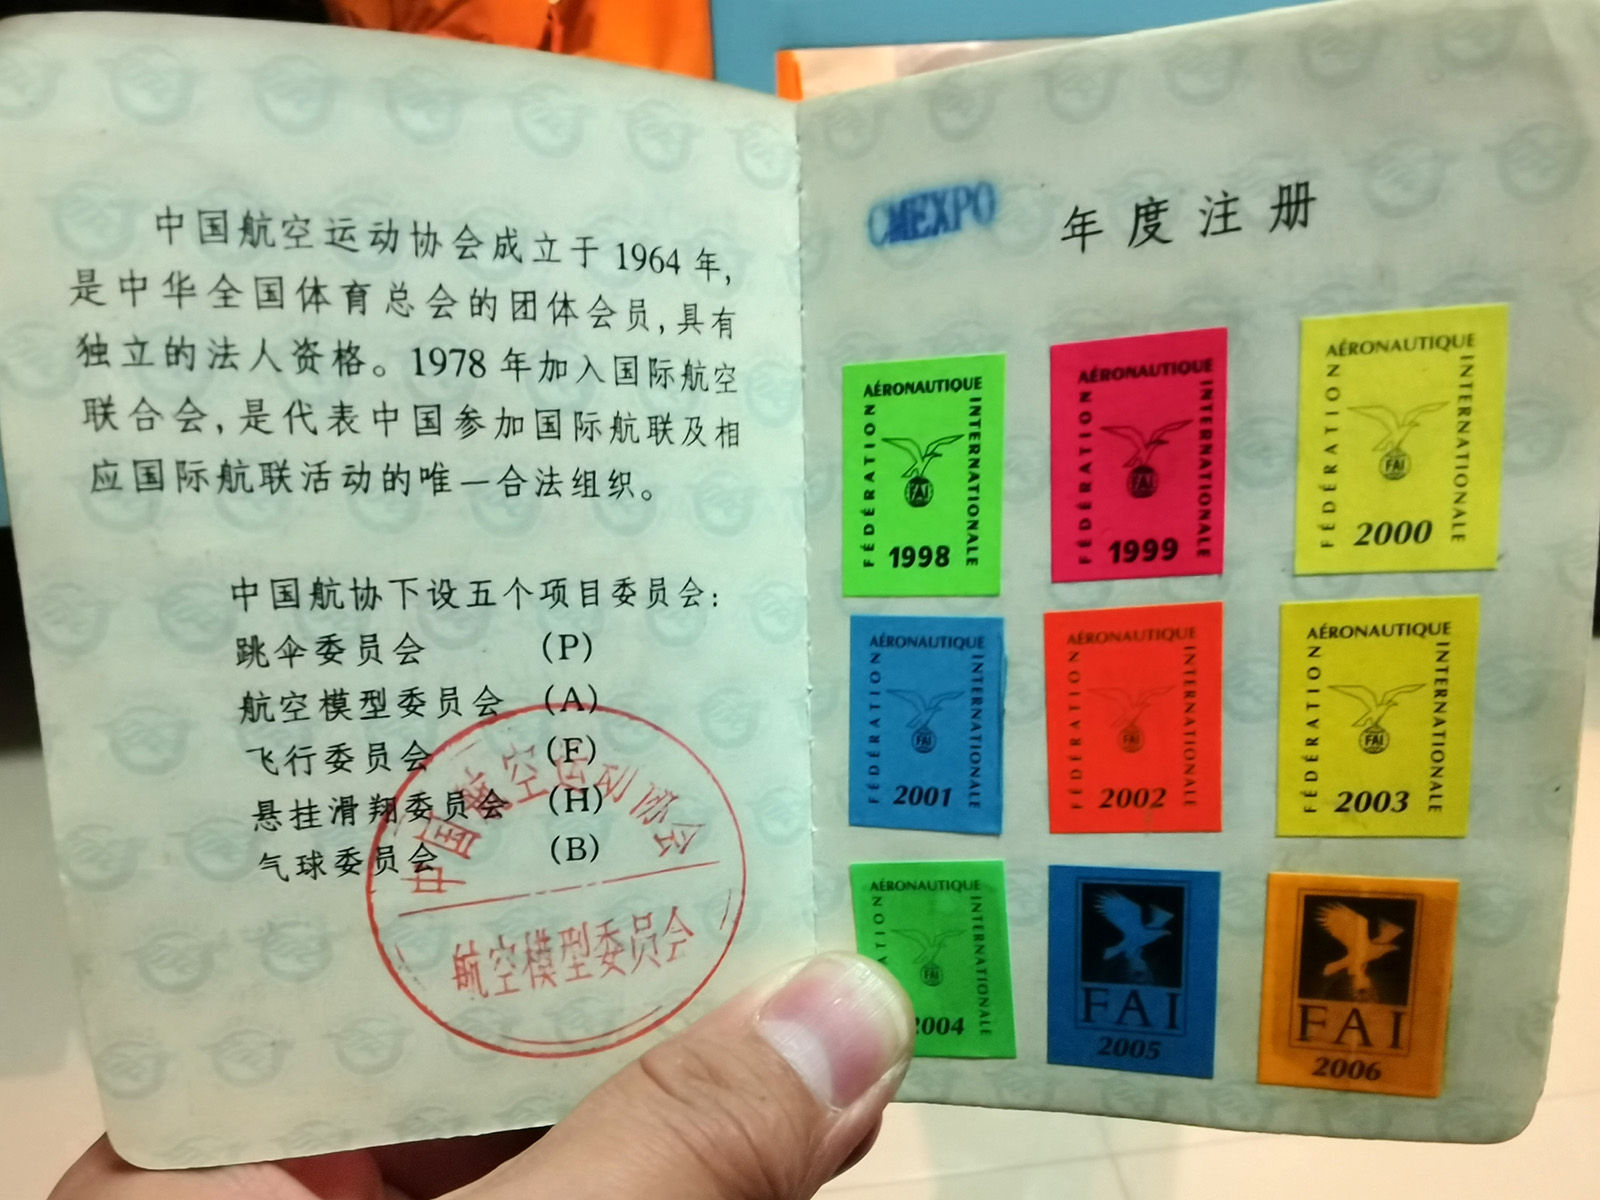 中国航空运动协会成立于 1964 年,
是中华全国体育总会的团体会员,具有
独立的法人资格。1978 年加入国际航空
联合会,是代表中国参加国际航联及相
应国际航联活动的唯一合法组织。
中国航协下设五个项目委员会:
跳伞委员会 (P)
航空模型委员会 (A)
飞行委员会 (F)
悬挂滑翔委员会 (H)
气球委员会 (B)
中国航空运动协会
航空模型委员会
CMEXPO
年度注册
FÉDÉRATION
AÉRONAUTIQUE
INTERNATIONALE
FAI
1998
FÉDÉRATION
AÉRONAUTIQUE
INTERNATIONALE
FAI
1999
FÉDÉRATION
AÉRONAUTIQUE
INTERNATIONALE
FAI
2000
FÉDÉRATION
AÉRONAUTIQUE
INTERNATIONALE
FAI
2001
FÉDÉRATION
AÉRONAUTIQUE
INTERNATIONALE
FAI
2002
FÉDÉRATION
AÉRONAUTIQUE
INTERNATIONALE
FAI
2003
ATION
AÉRONAUTIQUE
INTERNATIONALE
FAI
2004
FAI
2005
FAI
2006